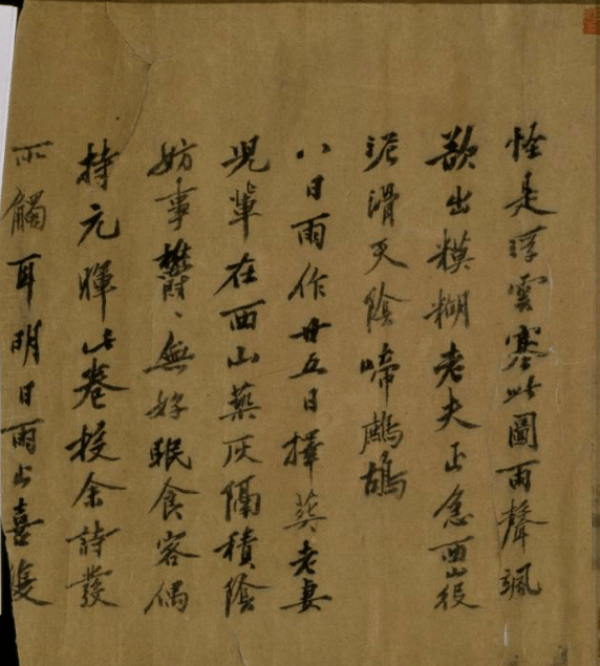 怪是浮雲塞此圖雨聲颯
欲出糢糊老夫正急西山役
泥滑天陰啼鷓鴣
八日雨作廿五日擇葬老妻
児輩在西山築灰隔積陰
妨事欝〻無好眠食客偶
持元暉此卷投余詩發
而觸耳明日雨止喜復